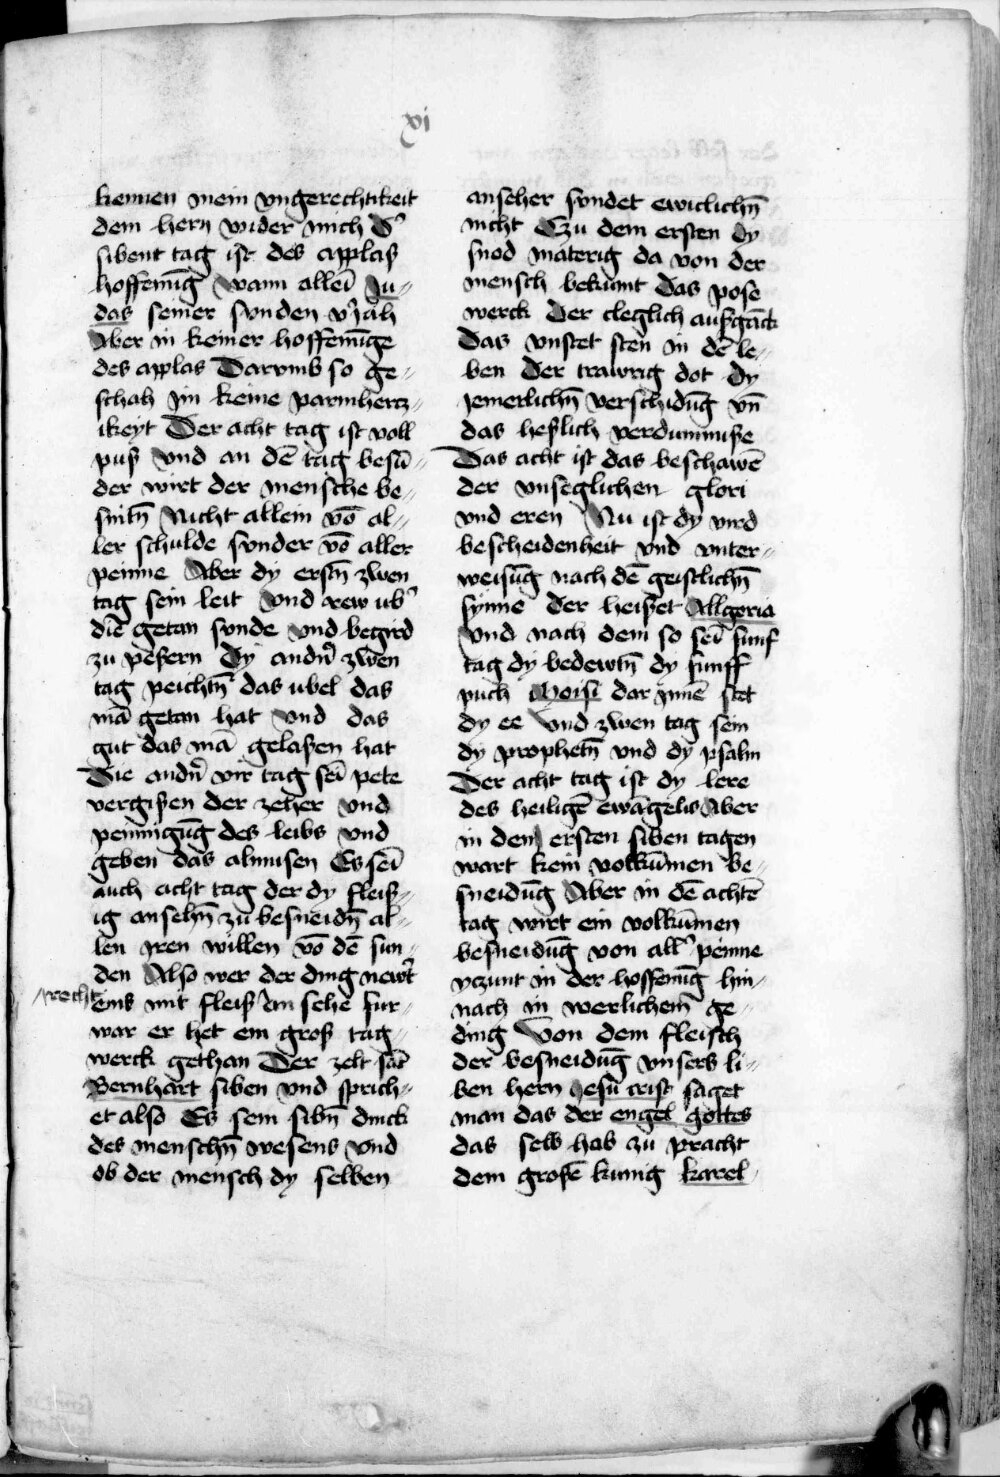 xi
kennen mein vngerechtikeit
dem hern wider mich D'
sibent tag ist des applas
hoffenūg wann alleī Ju-
das seiner sunden v'iah
Aber in keiner hoffenūge
des applas Darvmb so ge-
schah jm keine parmhercz-
ikeyt Der acht tag ist voll
puß vnd an dē tag besū-
der wirt der mensche be-
snitn̄ Nicht allein vō al-
ler schulde sunder vō aller
peinne Aber dy erstn̄ zwen
tag sein leit vnd rew ub'
die getan sunde vnd begird
zu peßern Dy andn̄ zwen
tag peichtn̄ das ubel das
mā getan hat vnd das
gut das mā gelaßen hat
Die andn̄ vir tag seī pete
vergißen der zeher vnd
pennigūg des leibs vnd
geben das almusen Es seī
auch acht tag der dy fleiß-
ig ansehn̄ zu besneidn̄ al-
len iren willen vō dē sun-
den Also wer der ding newr̄t
recht
eins mit fleiß an sehe fur-
war er het ein groß tag-
werck gethan Der zelt sāt
Bernhart siben vnd sprich-
et also Es sein sibn̄ dinck
des menschn̄ wesens vnd
ob der mensch dy selben
anseher sundet ewiclichn̄
nicht Czu dem ersten dy
snod materig da von der
mensch bekumt das pose
werck Der cleglich außgāck
Das vnstet sten in dē le-
ben der trawrig dot dy
jemerlichn̄ verschidūg vn̄
das heßlich verdumniße
Das acht ist das beschawē
der vnseglichen glori
vnd eren Nu ist dy vird
bescheidenheit vnd vnter-
weisūg nach dē geistlichn̄
synne der heißet Allgoria
vnd nach dem so seī funf
tag dy bedewtn̄ dy funff
puch Moisi dar ynnē stet
dy ee vnd zwen tag sein
dy prophetn̄ vnd dy psalm
Der acht tag ist dy lere
des heiligē ewāgelis Aber
in den ersten siben tagen
wart kein volkūmen be-
sneidūg Aber in dē achtē
tag wirt ein volkūmen
besneidūg von all' peinne
yczunt in der hoffenūg hin-
nach in werlichem ge-
ding Von dem fleisch
der besneidūg vnsers li-
ben hern Jesū crist saget
man das der engel gottes
das selb hab zu pracht
dem großē kunig karel-